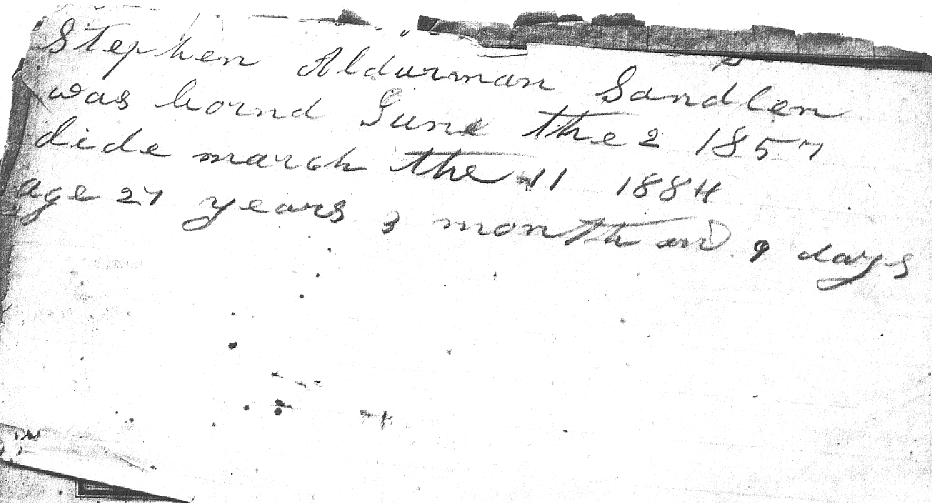 Stephen Aldurman Sandlen
was bornd June the 2 1857
dide march the 11 1884
age 27 years 3 month and 9 days